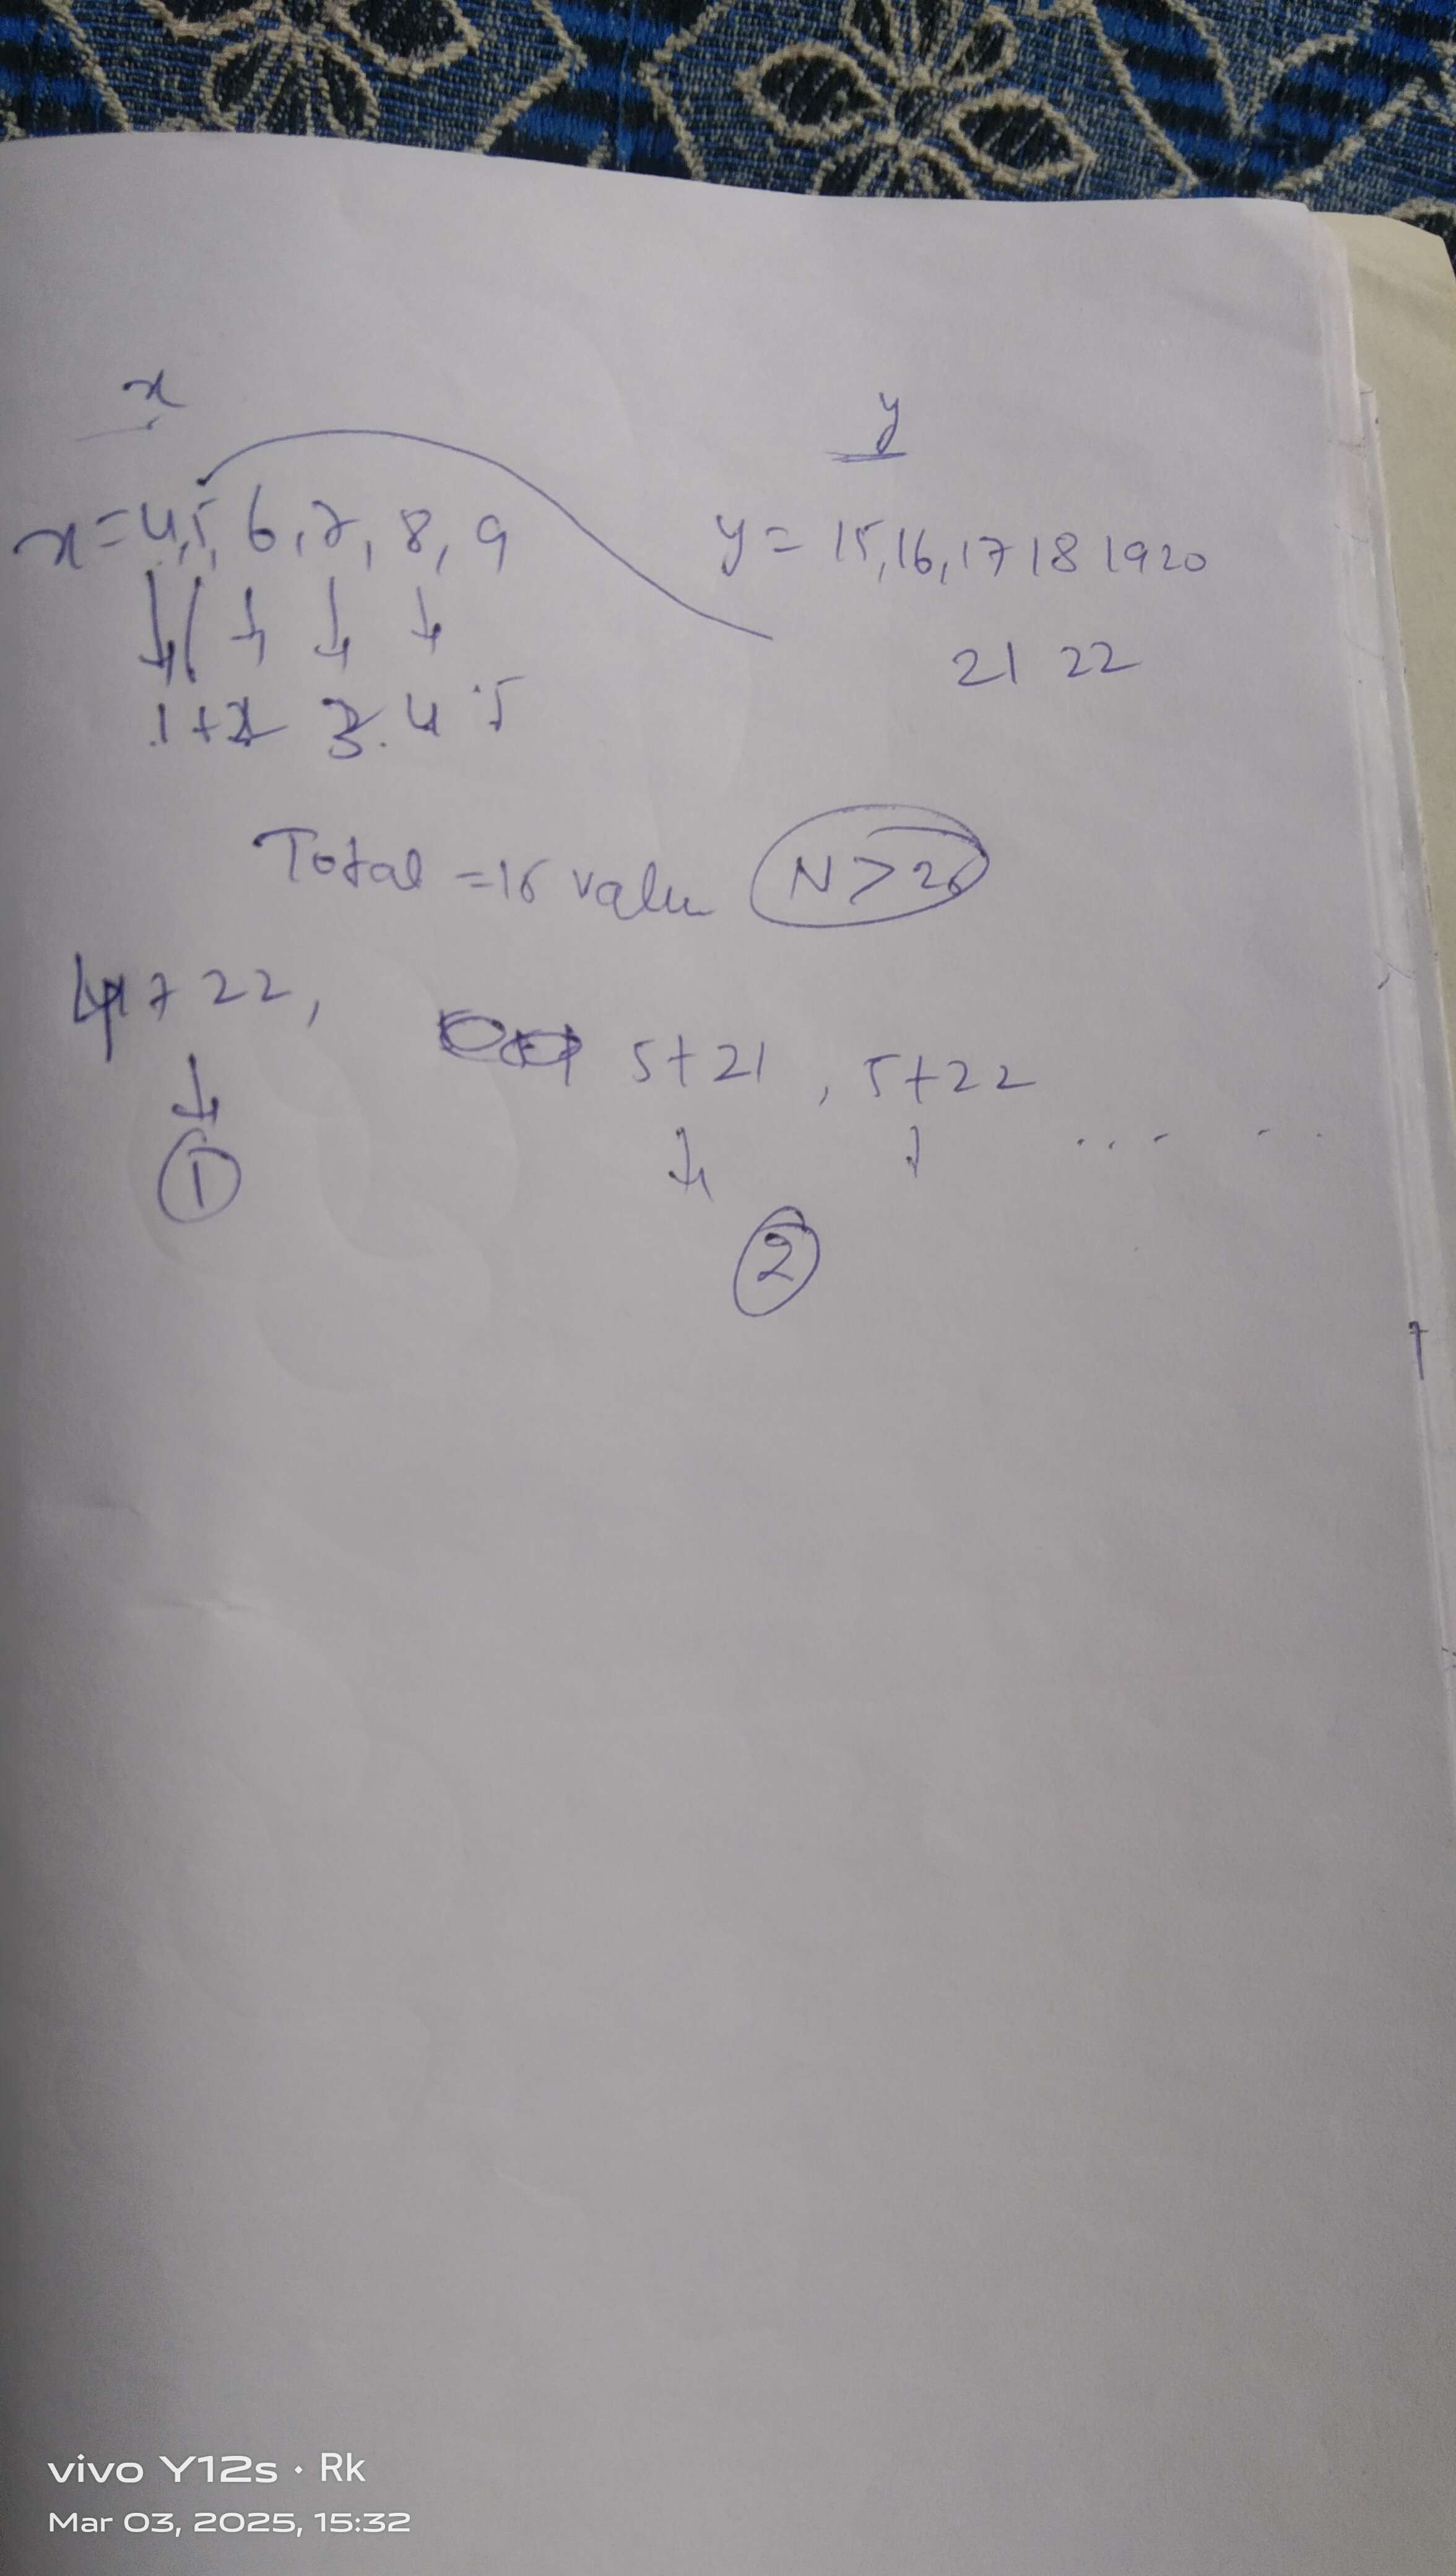 x
y
x = 4, 5, 6, 7, 8, 9
y = 15, 16, 17 18 19 20
21 22
1 + 2 3. 4 5
Total = 15 value N > 26
4 + 22,
5 + 21 , 5 + 22
... - - .
1
2
vivo Y12s · Rk
Mar 03, 2025, 15:32